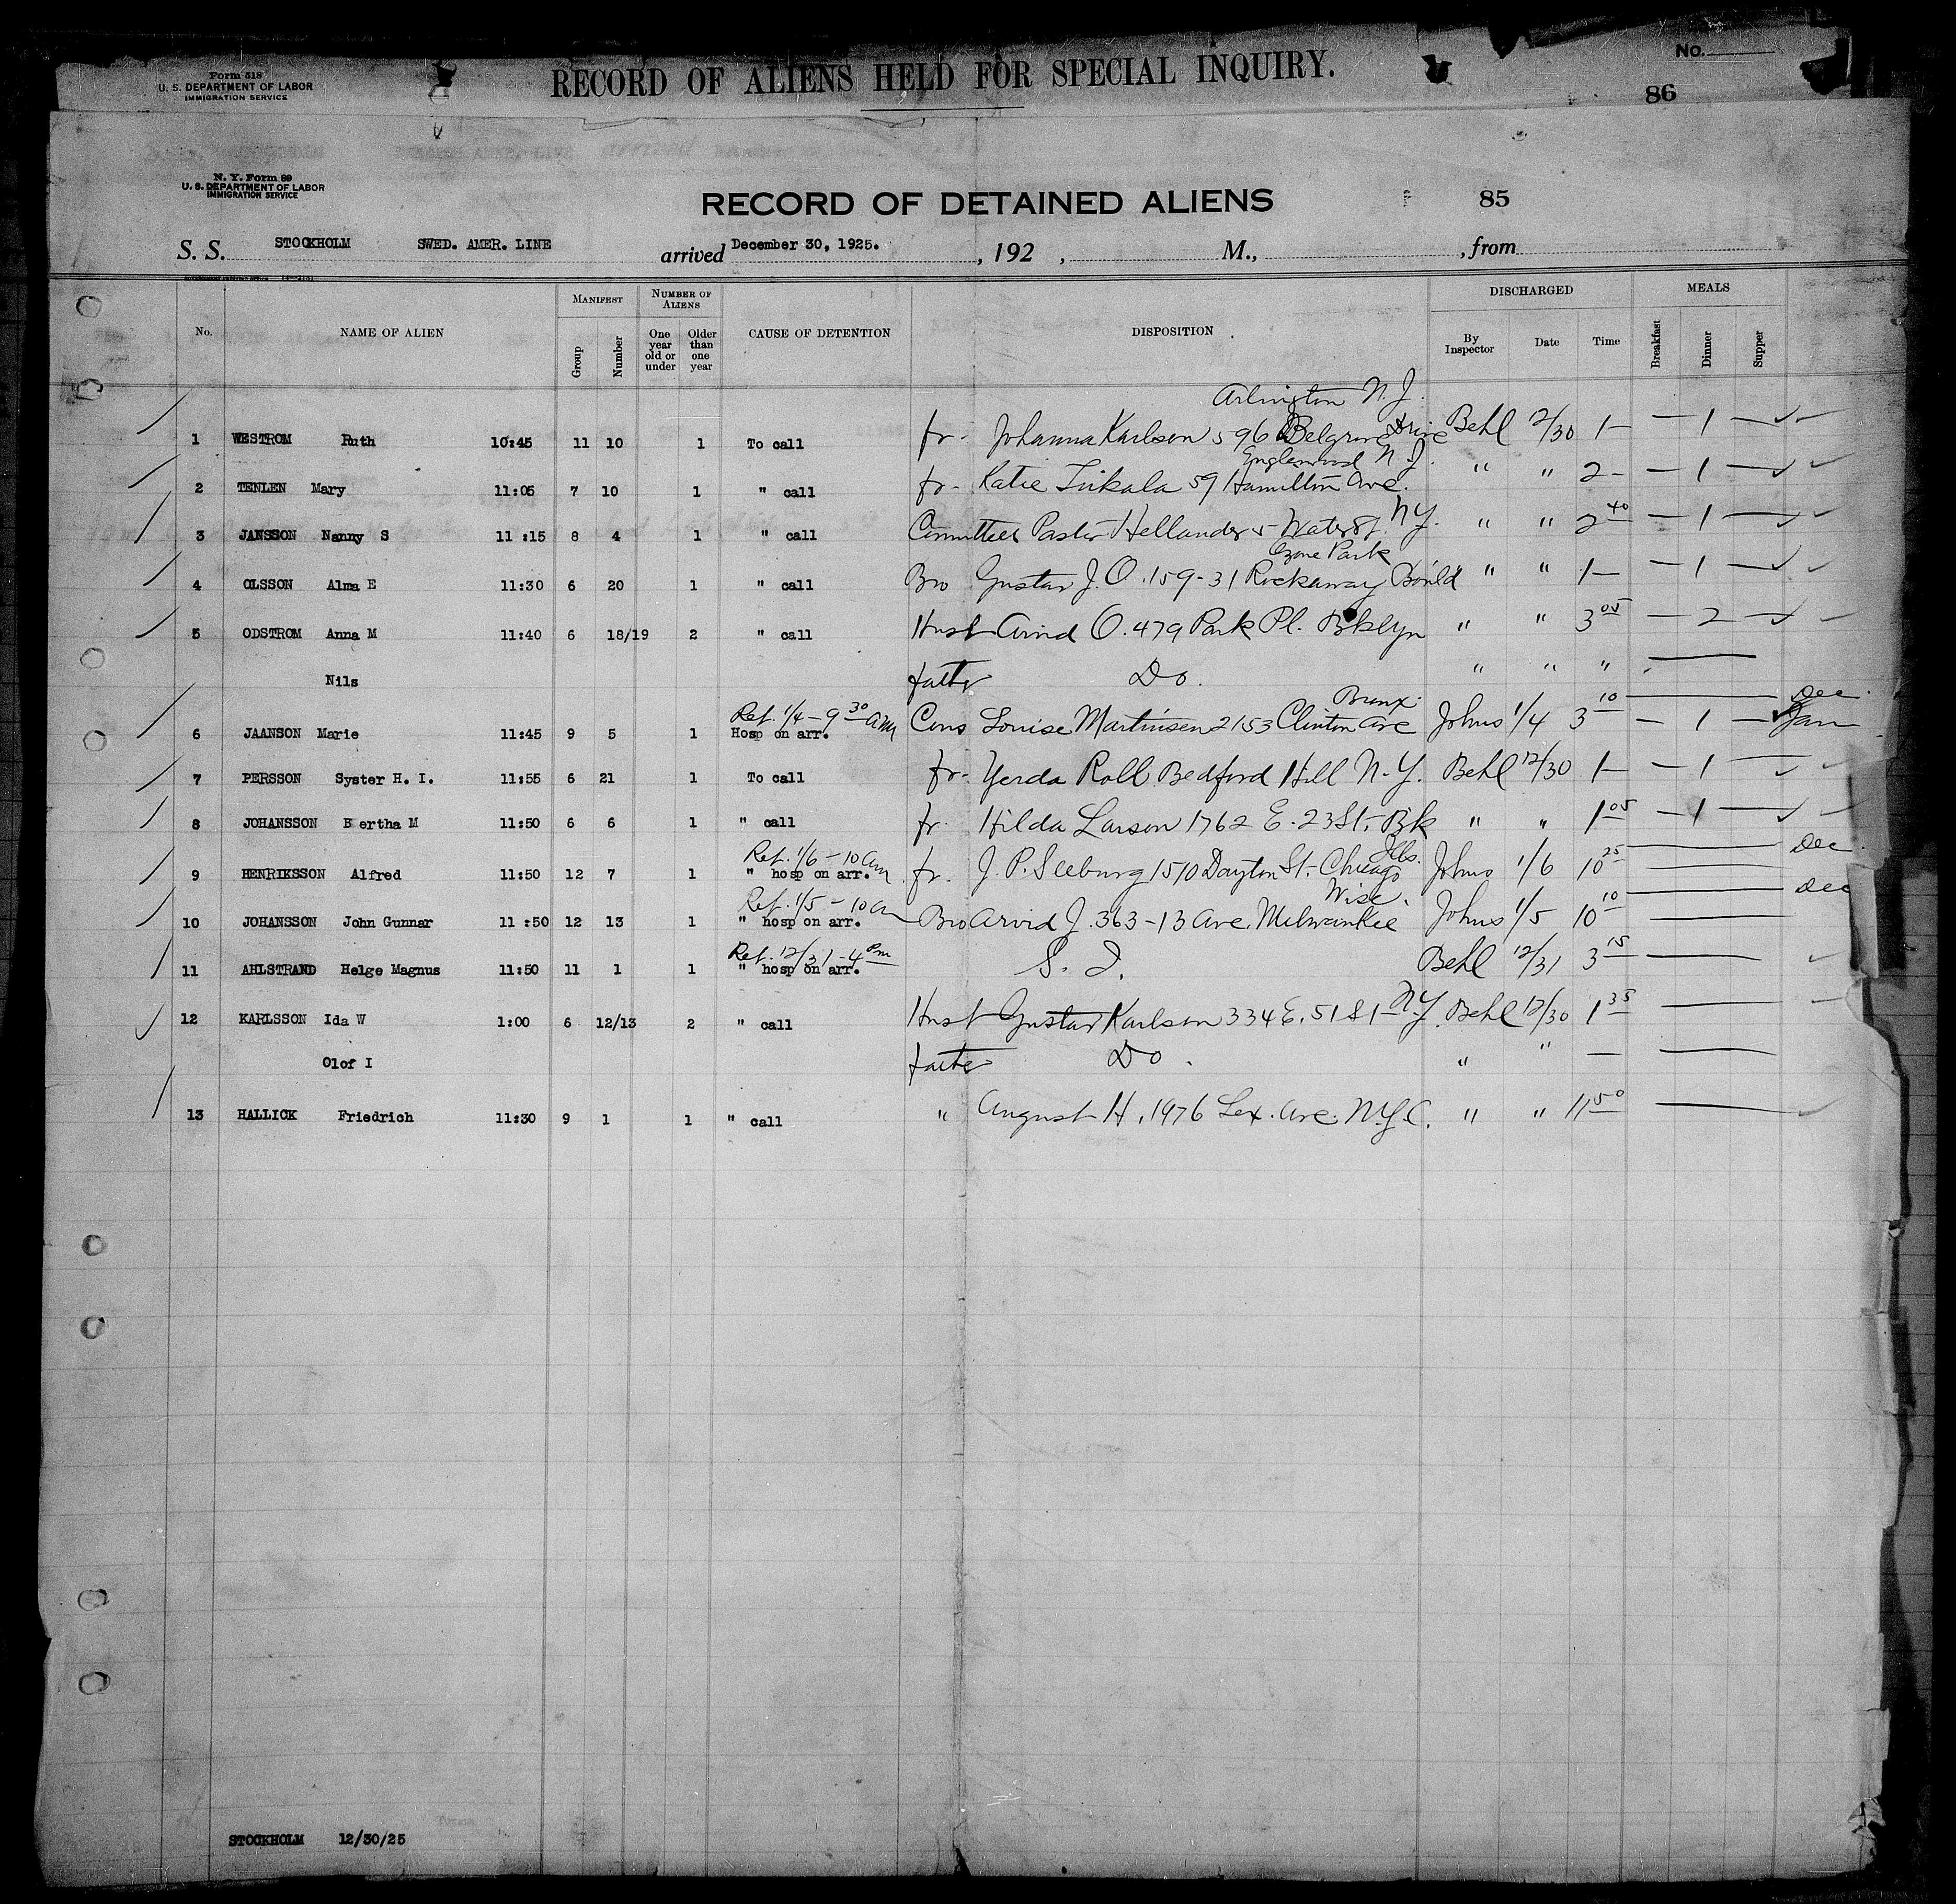 Form 518
U. S. DEPARTMENT OF LABOR
IMMIGRATION SERVICE
RECORD OF ALIENS HELD FOR SPECIAL INQUIRY.
No.
86
N. Y. Form 89
U. S. DEPARTMENT OF LABOR
IMMIGRATION SERVICE
RECORD OF DETAINED ALIENS 85
S. S. STOCKHOLM SWED. AMER. LINE arrived December 30, 1925. , 192 , M., , from
No. NAME OF ALIEN MANIFEST Group Number NUMBER OF ALIENS One year old or under Older than one year CAUSE OF DETENTION DISPOSITION DISCHARGED By Inspector Date Time MEALS Breakfast Dinner Supper
Arlington N. J.
1 WESTROM Ruth 10:45 11 10 1 To call fr. Johanna Karlson 596 Belgrove Drive Behl 12/30 1— — 1 —
Englewood N. J.
2 TENLEN Mary 11:05 7 10 1 " call fr. Katie 59 Hamilton Ave. " " 2— — 1 —
3 JANSSON Nanny S 11 :15 8 4 1 " call Committee Pastor Hellander 5 Water St. N.Y. " " 2 40 — 1 —
Ozone Park
4 OLSSON Alma E 11:30 6 20 1 " call Bro Gustav J. O. 159-31 Rockaway Bould " " 1— — 1 —
5 ODSTROM Anna M 11:40 6 18/19 2 " call Husb Arvid O. 479 Park Pl. Bklyn " " 3 05 — 2 —
Nils father Do. " " "
Ret. 1/4 - 9 30 AM Bronx Dec
6 JAANSON Marie 11:45 9 5 1 Hosp on arr. Cous Louise Martinsen 2153 Clinton Ave Johns 1/4 3 10 — 1 — Jan
7 PERSSON Syster H. I. 11:55 6 21 1 To call fr. Yerda Roll Bedford Hill N.Y. Behl 12/30 1— — 1 —
8 JOHANSSON Bertha M 11:50 6 6 1 " call fr. Hilda Larson 1762 E. 23 St. Bk " " 1 05 — 1 —
Ret. 1/6 - 10 am Ills. Dec
9 HENRIKSSON Alfred 11:50 12 7 1 " hosp on arr. fr. J. P. Seeburg 1510 Dayton St. Chicago Johns 1/6 10 25
Ret. 1/5 - 10 am Wisc. Dec
10 JOHANSSON John Gunnar 11 :50 12 13 1 " hosp on arr. Bro Arvid J. 363-13 Ave. Milwaukee Johns 1/5 10 10
Ret. 12/31 - 4 pm
11 AHLSTRAND Helge Magnus 11:50 11 1 1 " hosp on arr. S. I. Behl 12/31 3 15
12 KARLSSON Ida W 1:00 6 12/13 2 " call Husb Gustav Karlson 334 E. 51 St N.Y. Behl 12/30 1 35
Olof I father Do. " " —
13 HALLICK Friedrich 11:30 9 1 1 " call " August H. 1976 Lex. Ave. N.Y.C. " " 11 50
STOCKHOLM 12/30/25